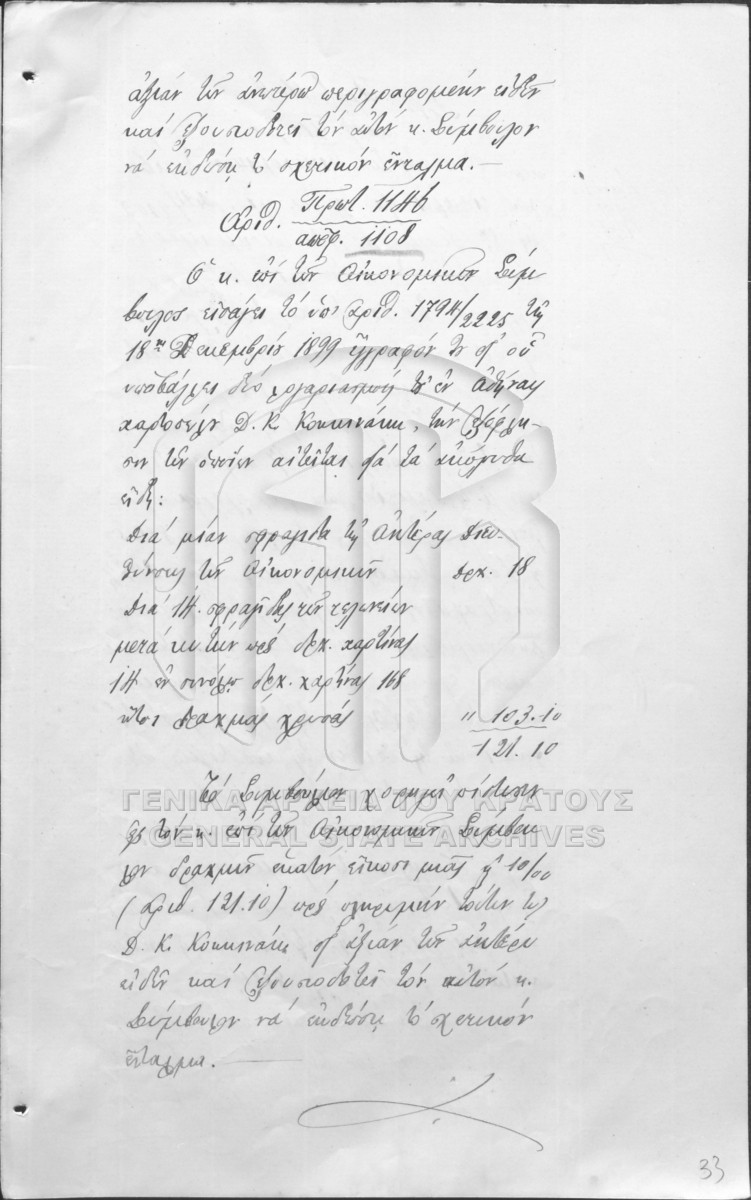 ἀξίαν τῶν ἀνωτέρω περιγραφομένων εἰδῶν
καὶ ἐξουσιοδοτεῖ τὸν αὐτὸν κ. Σύμβουλον
νὰ ἐκδώσῃ τὸ σχετικὸν ἔνταλμα.—
Ἀριθ. Πρωτ. 1146
αποφ. 1108
Ὁ κ. ἐπὶ τῶν Οἰκονομικῶν Σύμ-
βουλος εἰσάγει τὸ ὑπ' ἀριθ. 1794/2225 τῆς
18ης Δεκεμβρίου 1899 ἔγγραφόν του δι' οὗ
ὑποβάλλει δύο λογαριασμοὺς τοῦ ἐν Ἀθήναις
χαρτοπώλου Δ. Κ. Κοκκινάκη, τὴν ἐξόφλη-
σιν τῶν ὁποίων αἰτεῖται διὰ τὰ ἀκόλουθα
εἴδη:
Διὰ μίαν σφραγῖδα τῆς Ἀνωτέρας Διευ-
θύνσεως τῶν Οἰκονομικῶν Δρχ. 18
Διὰ 14 σφραγῖδας τῶν τελωνείων
μετὰ κυτίων πρὸς δρχ. χαρτίνας
14 ἐν συνόλῳ δρχ. χαρτίνας 168
ἤτοι δραχμὰς χρυσᾶς " 103.10
121.10
Τὸ Συμβούλιον χορηγεῖ πίστωσιν
εἰς τὸν κ. ἐπὶ τῶν Οἰκονομικῶν Σύμβου-
λον δραχμῶν ἑκατὸν εἴκοσι μιᾶς καὶ 10/00
(ἀριθ. 121.10) πρὸς πληρωμὴν τούτων τῷ
Δ. Κ. Κοκκινάκῃ δι' ἀξίαν τῶν ἀνωτέρω
εἰδῶν καὶ ἐξουσιοδοτεῖ τὸν αὐτὸν κ.
Σύμβουλον νὰ ἐκδώσῃ τὸ σχετικὸν
ἔνταλμα.—
ΓΕΝΙΚΑ ΑΡΧΕΙΑ ΤΟΥ ΚΡΑΤΟΥΣ
GENERAL STATE ARCHIVES
33